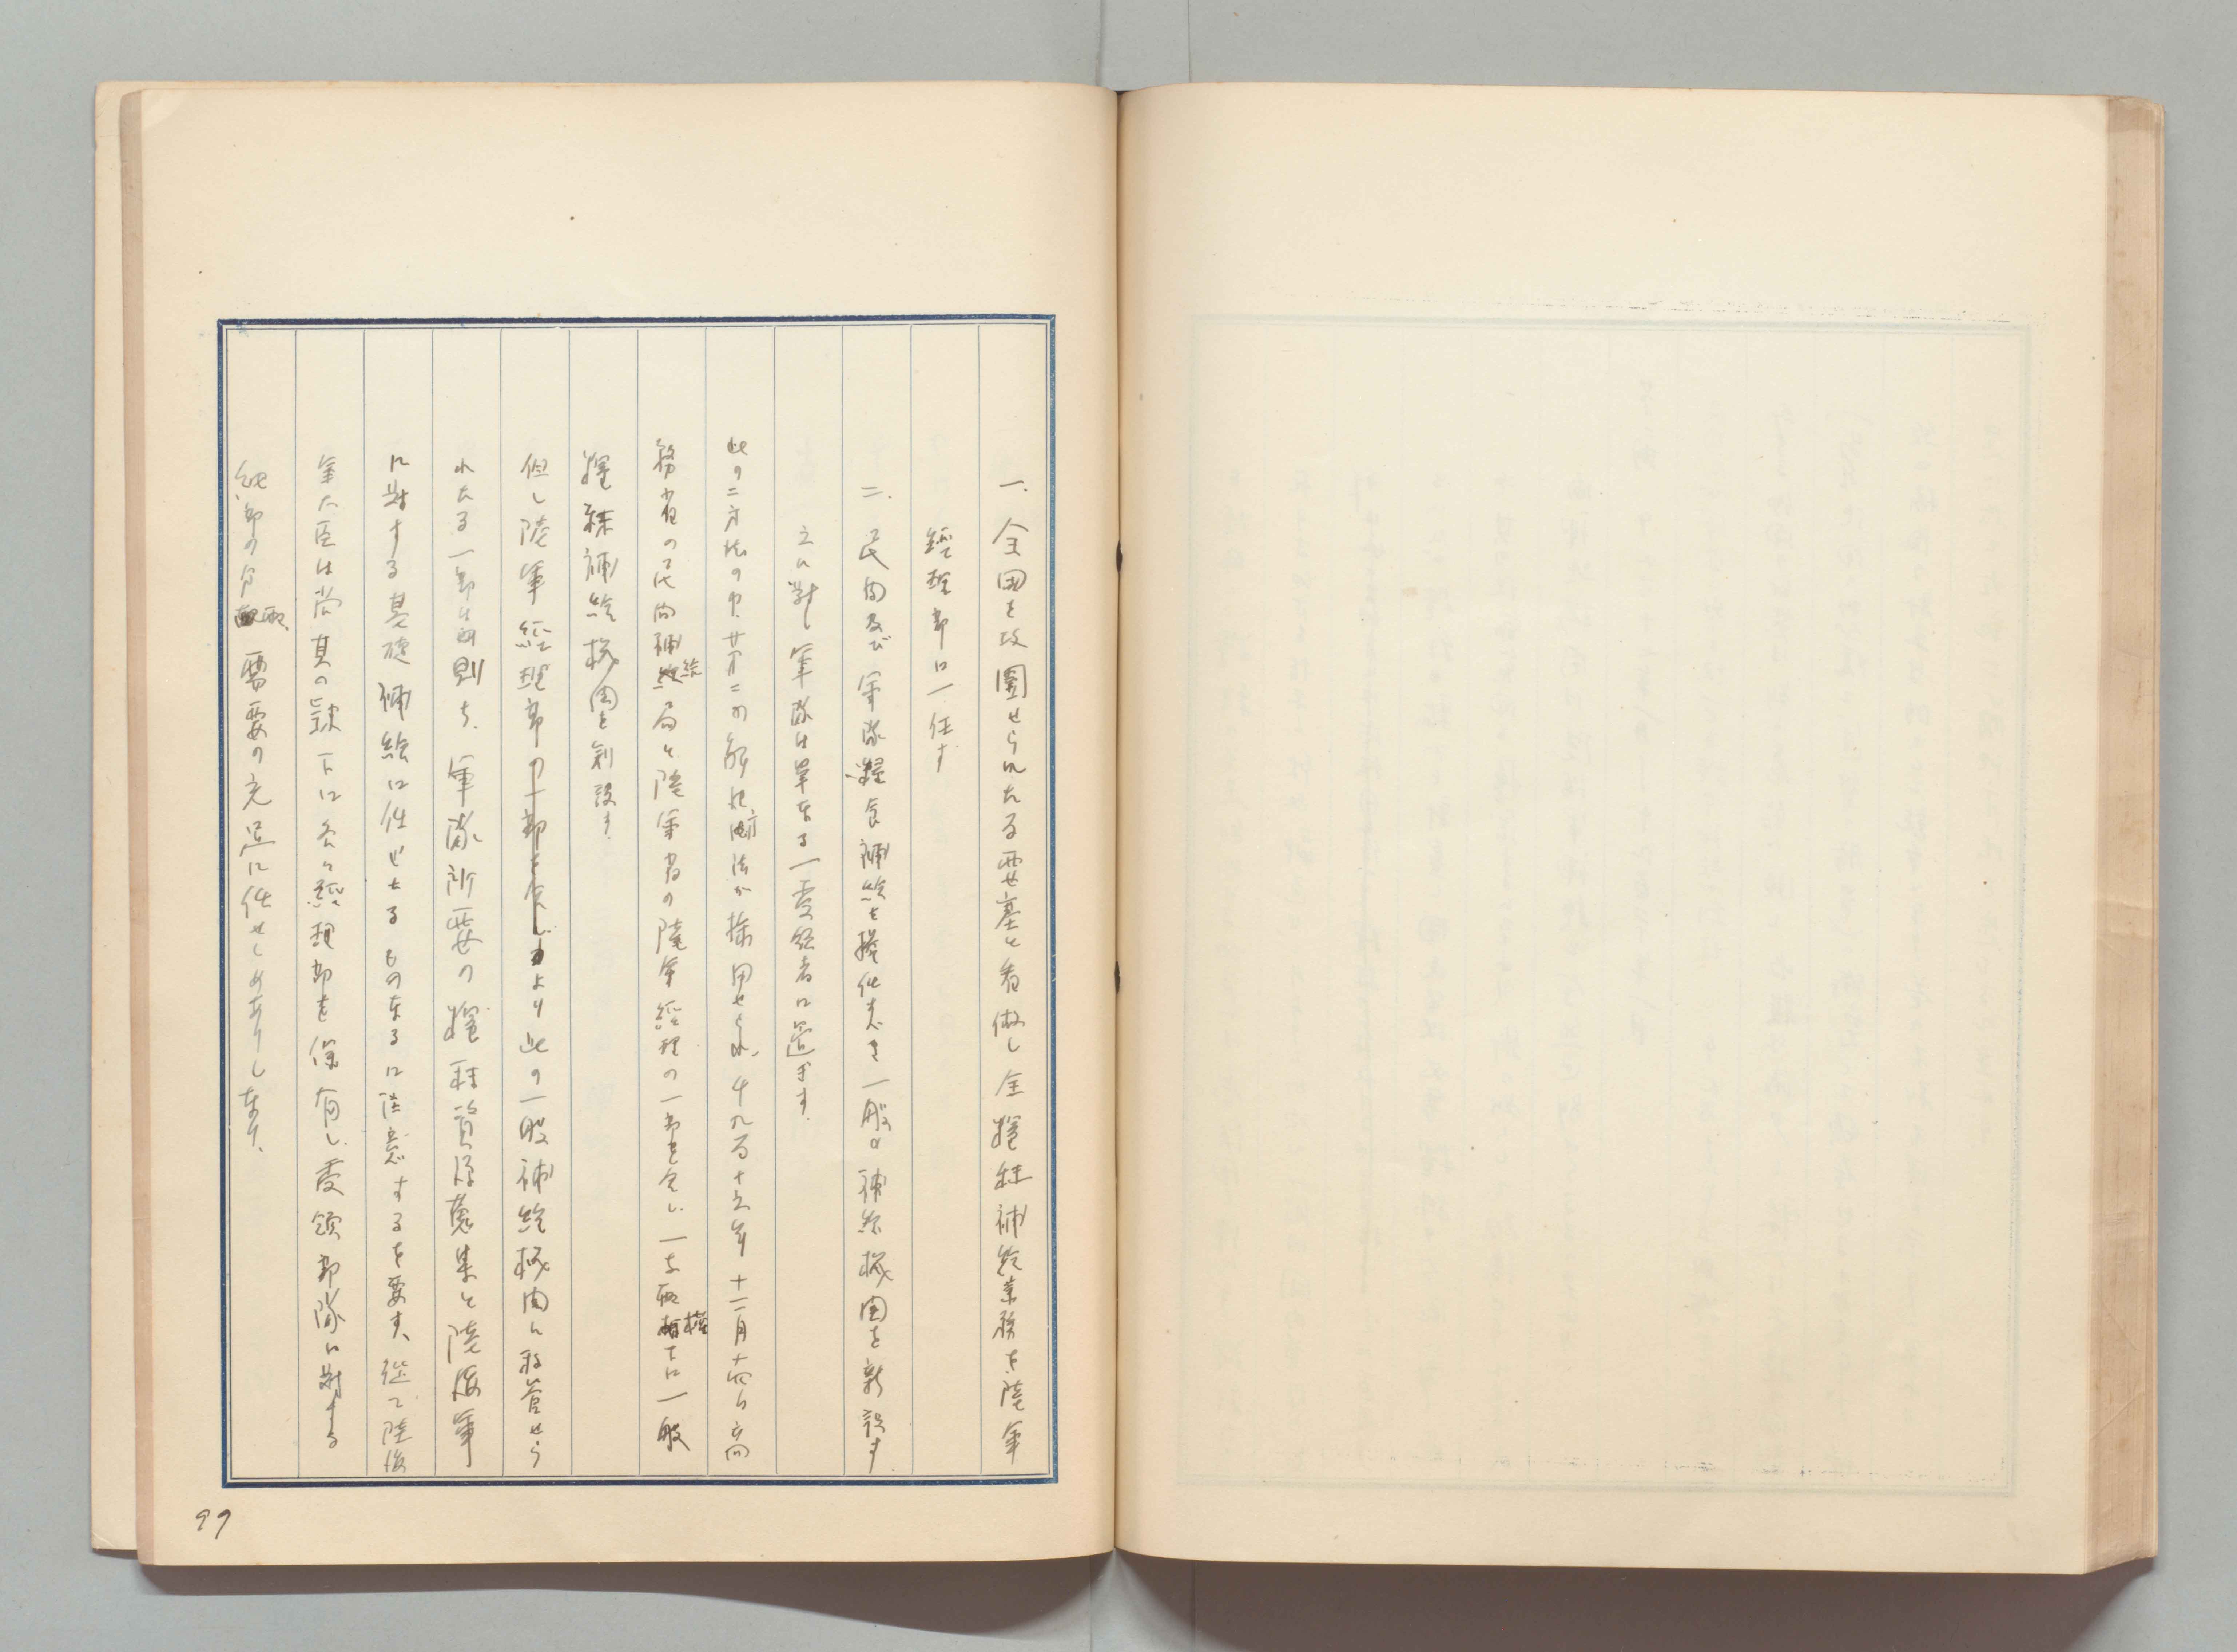 一.全国を攻囲せられたる要塞と看做し全糧秣補給業務を陸軍
経理部に一任す
二.民間及び軍隊糧食補給を擔任すべき一般の補給機関を新設す
之に対し軍隊は単なる一受給者に過ぎす.
此の二方法の中、第二の解決方法が採用せられ、千九百十五年十二月十四日商
務省の民間補給局と陸軍省の陸軍経理の一部を合し、一を以て一般
糧秣補給機関を創設す.
但し陸軍経理部より此の一般補給機関に移管せら
れたる一部は即ち、軍隊所要の糧秣資源蒐集と陸海軍
に対する基礎補給に任ぜたるものなるに注意するを要す、従て陸海
軍大臣は尚其の隷下に各々経理部を保有し、受領部隊に対する
細部の分配、需要の充足に任せしめありしなり、
97